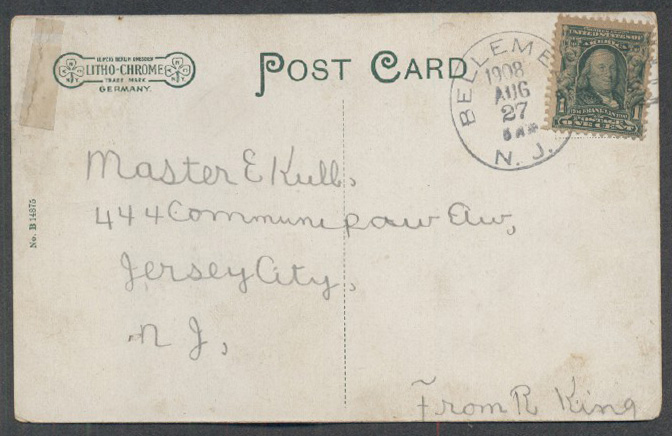 LEIPZIG BERLIN DRESDEN
LITHO-CHROME
TRADE MARK
GERMANY.
POST CARD
BELLEME
1908
AUG
27
N. J.
UNITED STATES OF
AMERICA
1
1
FRANKLIN
POSTAGE
ONE CENT
No. B 14875
Master E Kull,
444 Communipaw Av,
Jersey City,
N J,
From R King